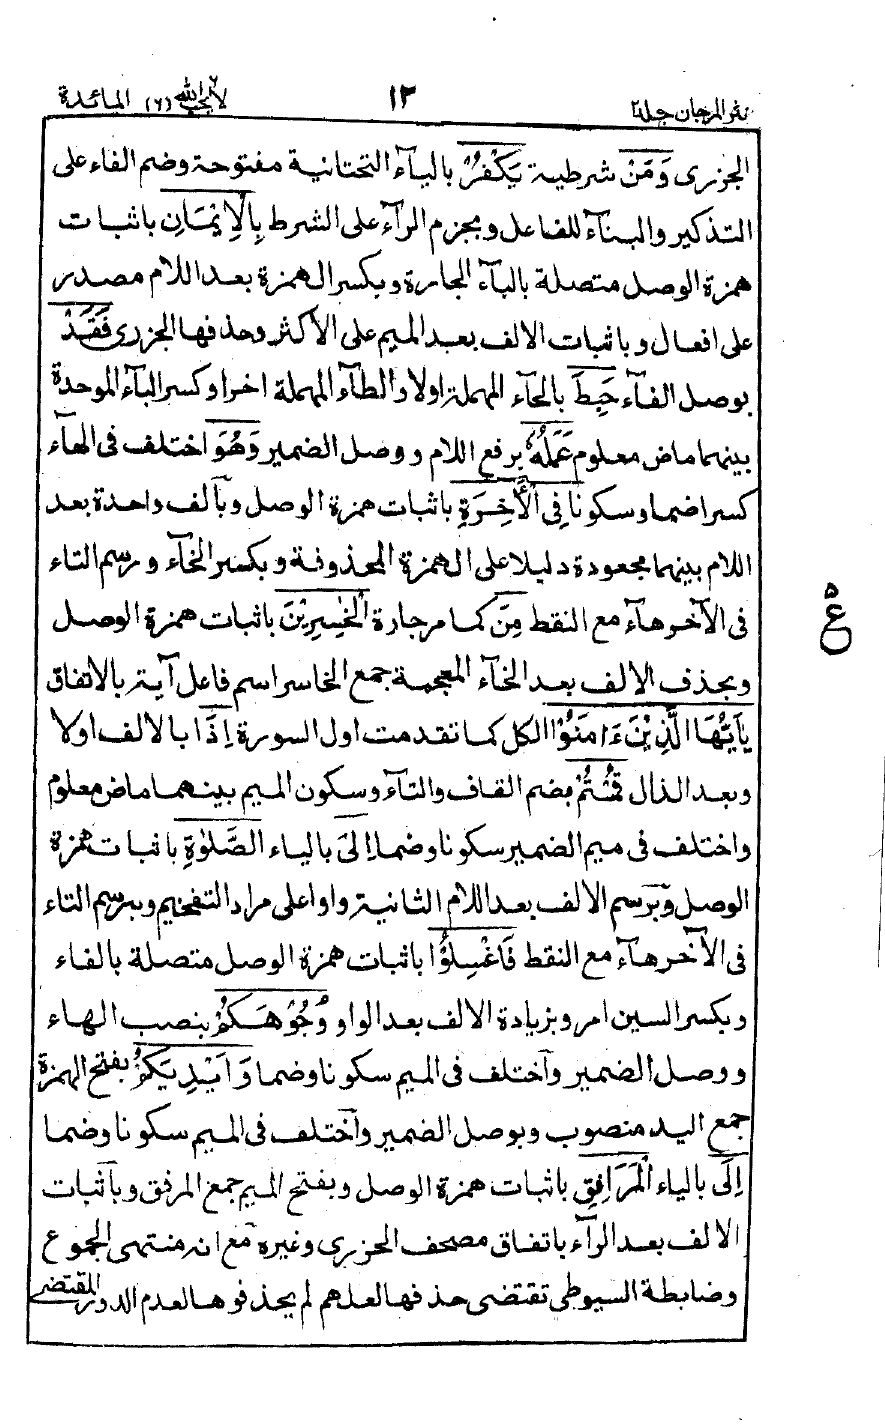 نثر المرجان جلد٢ ١٣ لا يحب الله (٦) المائدة
الجزرى وَمَنْ شرطية يَكْفُرْ بالياء التحتانية مفتوحة وضم الفاء على
التذكير والبناء للفاعل وبجزم الرآء على الشرط بِالْاِيْمَانِ باثبات
همزة الوصل متصلة بالبآء الجارة وبكسر الهمزة بعد اللام مصدر
على افعال وباثبات الالف بعد الميم على الأكثر وحذفها الجزرى فَقَدْ
بوصل الفآء حَبِطَ بالحآء المهملة اولا والطآء المهملة اخرا وكسر البآء الموحدة
بينهما ماض معلوم عَمَلُهٗ برفع اللام ووصل الضمير وَهُوَ اختلف فى الهآء
كسرا ضما وسكونا فِى الْاٰخِرَةِ باثبات همزة الوصل وبآلف واحدة بعد
اللام بينهما مجعودة دليلا على الهمزة المحذوفة وبكسر الخآء ورسم التاء
فى الآخر هآء مع النقط مِنَ كما مر جارة الْخٰسِرِيْنَ باثبات همزة الوصل
وبحذف الالف بعد الخآء المعجمة جمع الخاسر اسم فاعل آية بالاتفاق
يٰاَيُّهَا الَّذِيْنَ ءَامَنُوْا الكل كما تقدمت اول السورة اِذَا بالالف اولا
وبعد الذال قُمْتُمْ بضم القاف والتآء وسكون الميم بينهما ماض معلوم
واختلف فى ميم الضمير سكونا وضما اِلَى بالياء الصَّلٰوةِ باثبات همزة
الوصل وبرسم الالف بعد اللام الثانية واوا على مراد التفخيم وبرسم التاء
فى الآخر هآء مع النقط فَاغْسِلُوْا باثبات همزة الوصل متصلة بالفاء
وبكسر السين امر وبزيادة الالف بعد الواو وُجُوْهَكُمْ بنصب الهاء
ووصل الضمير وآختلف فى الميم سكونا وضما وَاَيْدِيَكُمْ بفتح الهمزة
جمع اليد منصوب وبوصل الضمير وآختلف فى الميم سكونا وضما
اِلَى بالياء الْمَرَافِقِ باثبات همزة الوصل وبفتح الميم جمع المرفق وبآثبات
الالف بعد الرآء باتفاق مصحف الجزرى وغيره مع انه منتهى الجموع
وضابطة السيوطى تقتضى حذفها لعلهم لم يحذفوها لعدم الدور المقتضى
٥
ع